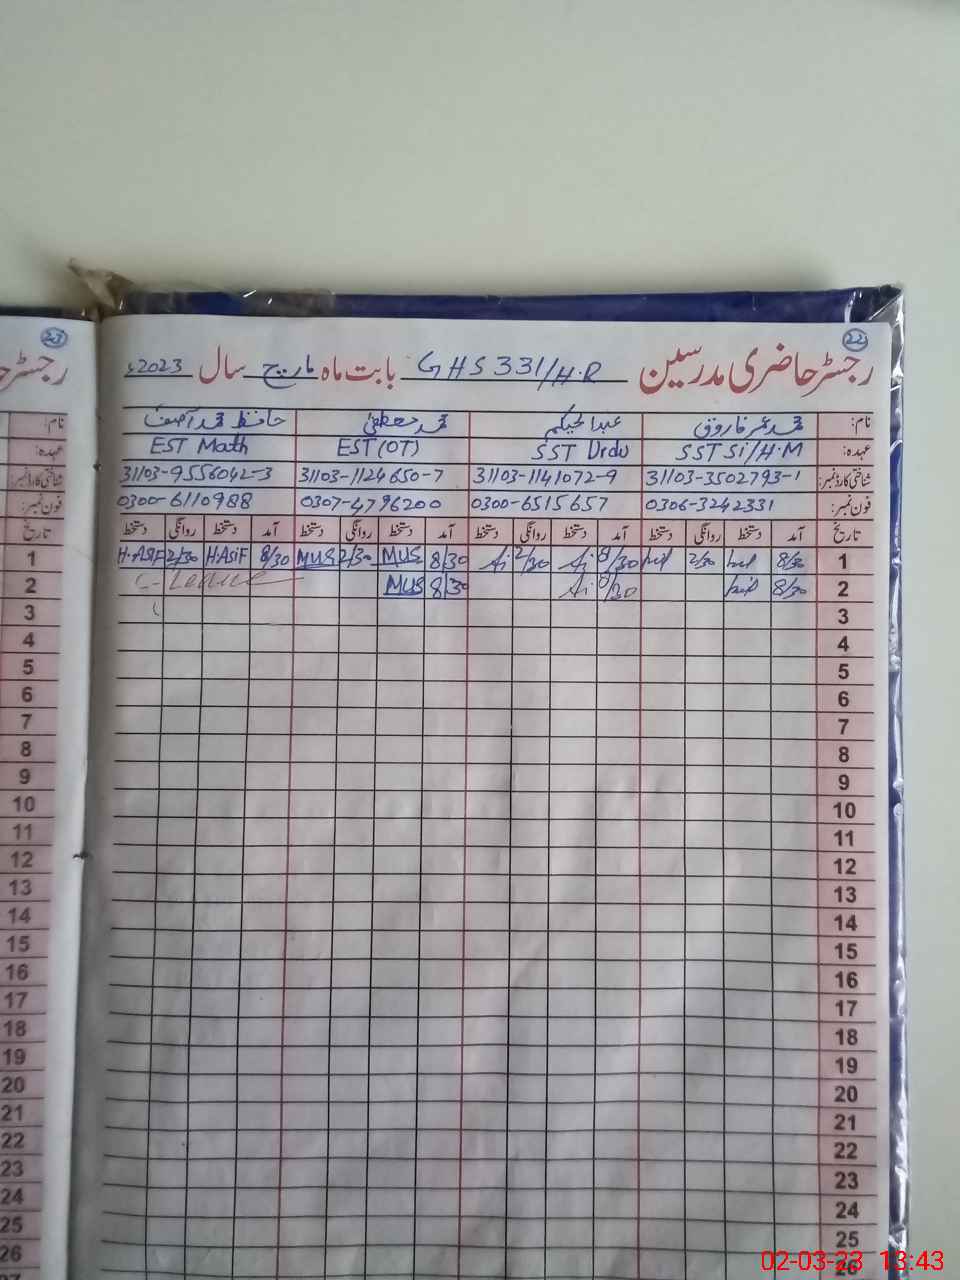 23
22
رجسٹر حاضری مدرسین GHS 331/H.R بابت ماہ مارچ سال 2023ء
نام: محمد عمر فاروق عبدالحکیم محمد مصطفیٰ حافظ محمد آصف
عہدہ: SST Sci/H.M SST Urdu EST(OT) EST Math
شناختی کارڈ نمبر: 31103-3502793-1 31103-1141072-9 31103-1124650-7 31103-9556042-3
فون نمبر: 0306-3242331 0300-6515657 0307-4796200 0300-6110988
تاریخ آمد دستخط روانگی دستخط آمد دستخط روانگی دستخط آمد دستخط روانگی دستخط آمد دستخط روانگی دستخط
1 8/30 2/30 8/30 Ai 2/30 Ai 8/30 MUS 2/30 MUS 8/30 H.ASiF 2/30 H.ASiF
2 8/30 8/30 Ai 8/30 MUS
3
4
5
6
7
8
9
10
11
12
13
14
15
16
17
18
19
20
21
22
23
24
25
26
1
2
3
4
5
6
7
8
9
10
11
12
13
14
15
16
17
18
19
20
21
22
23
24
25
26
02-03-23 13:43